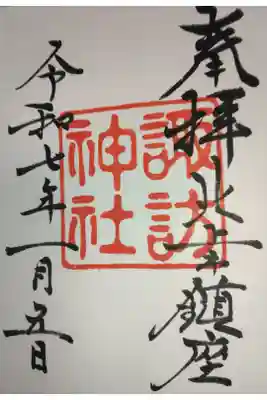 奉拝 北 鎮座
諏訪
神社
令和七年一月五日